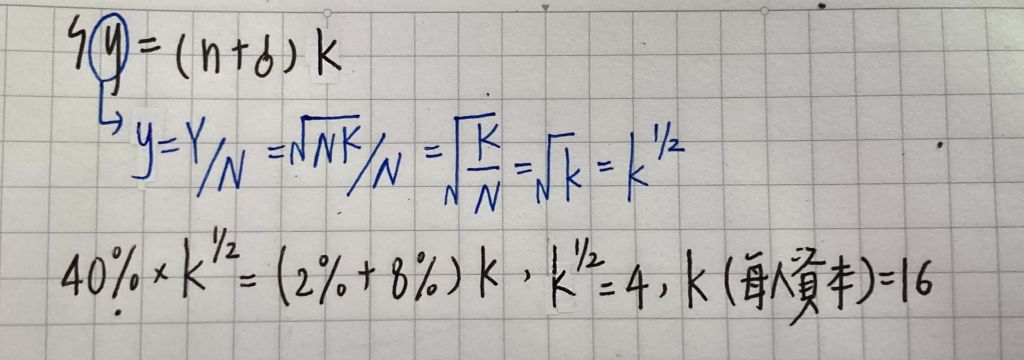 ㄣy = (n+δ) k
y = Y/N = √NK/N = √K/N = √k = k^1/2
40% × k^1/2 = (2% + 8%) k , k^1/2 = 4, k (每人資本) = 16